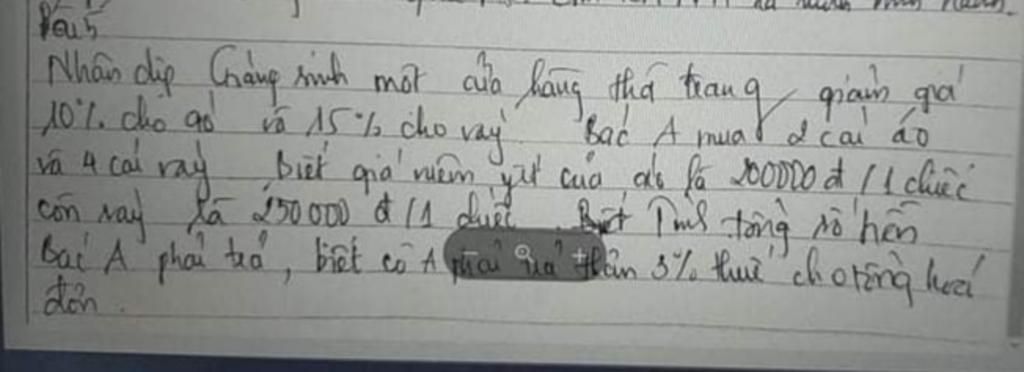 Câu 5
Nhân dịp Giáng sinh một cửa hàng thơ trang giảm giá
10% cho áo và 15% cho váy Bác A mua 2 cái áo
và 4 cái váy Biết giá niêm yết của áo là 200000 đ / 1 chiếc
còn váy là 250 000 đ / 1 chiếc Tính tổng số tiền
Bác A phải trả, biết cô A phải trả thân 3% thuế cho tổng hoá
đơn.